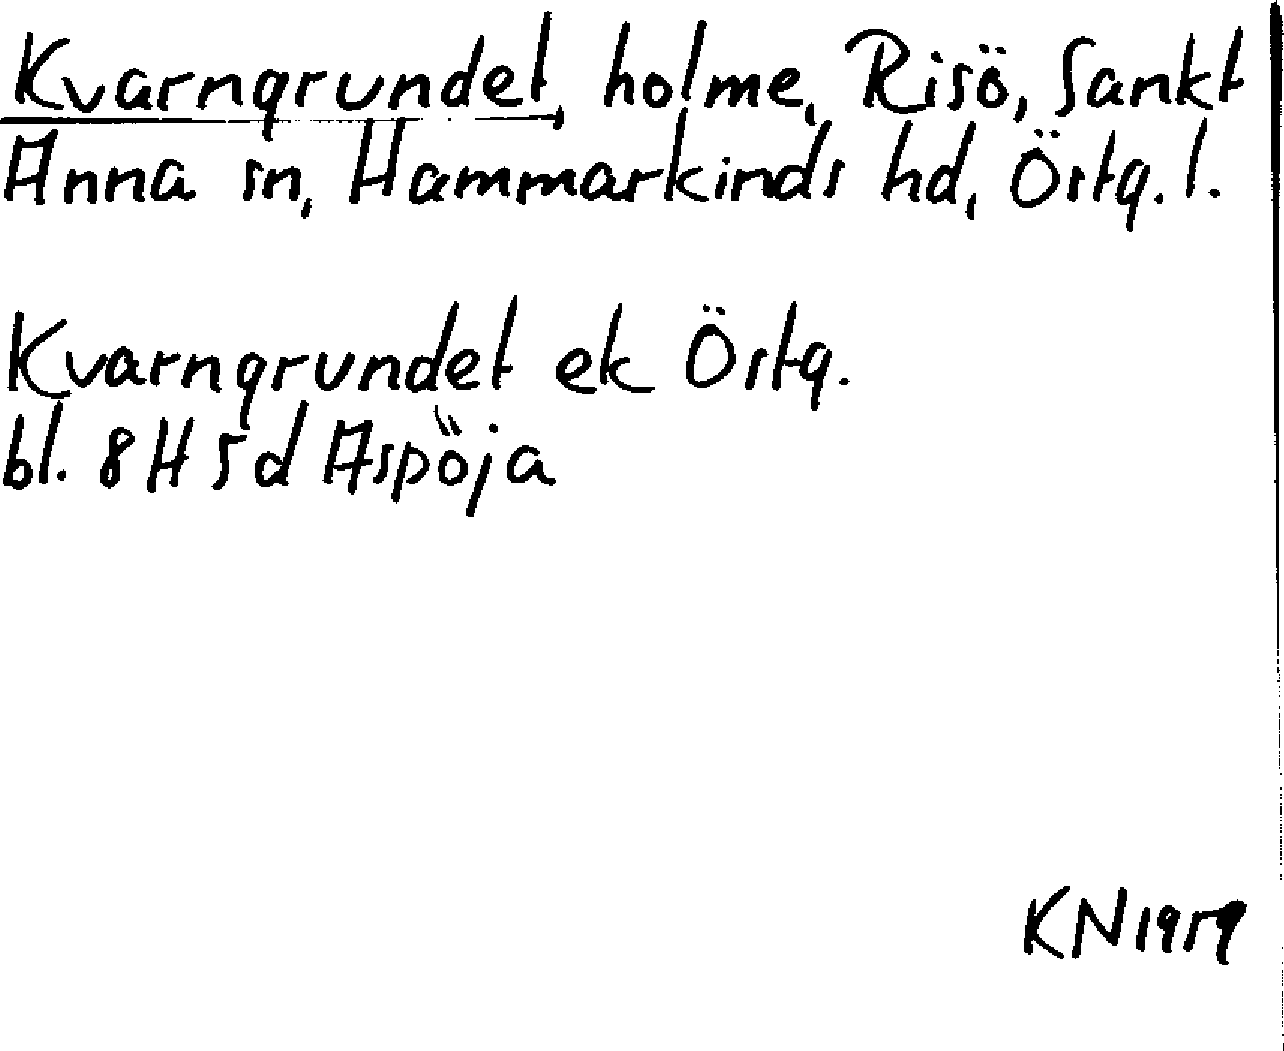 Kvarngrundet, holme, Risö, Sankt
Anna sn, Hammarkinds hd, Östg. l.
Kvarngrundet ek Östg.
bl. 8 H 5 d Aspöja
KN 1959